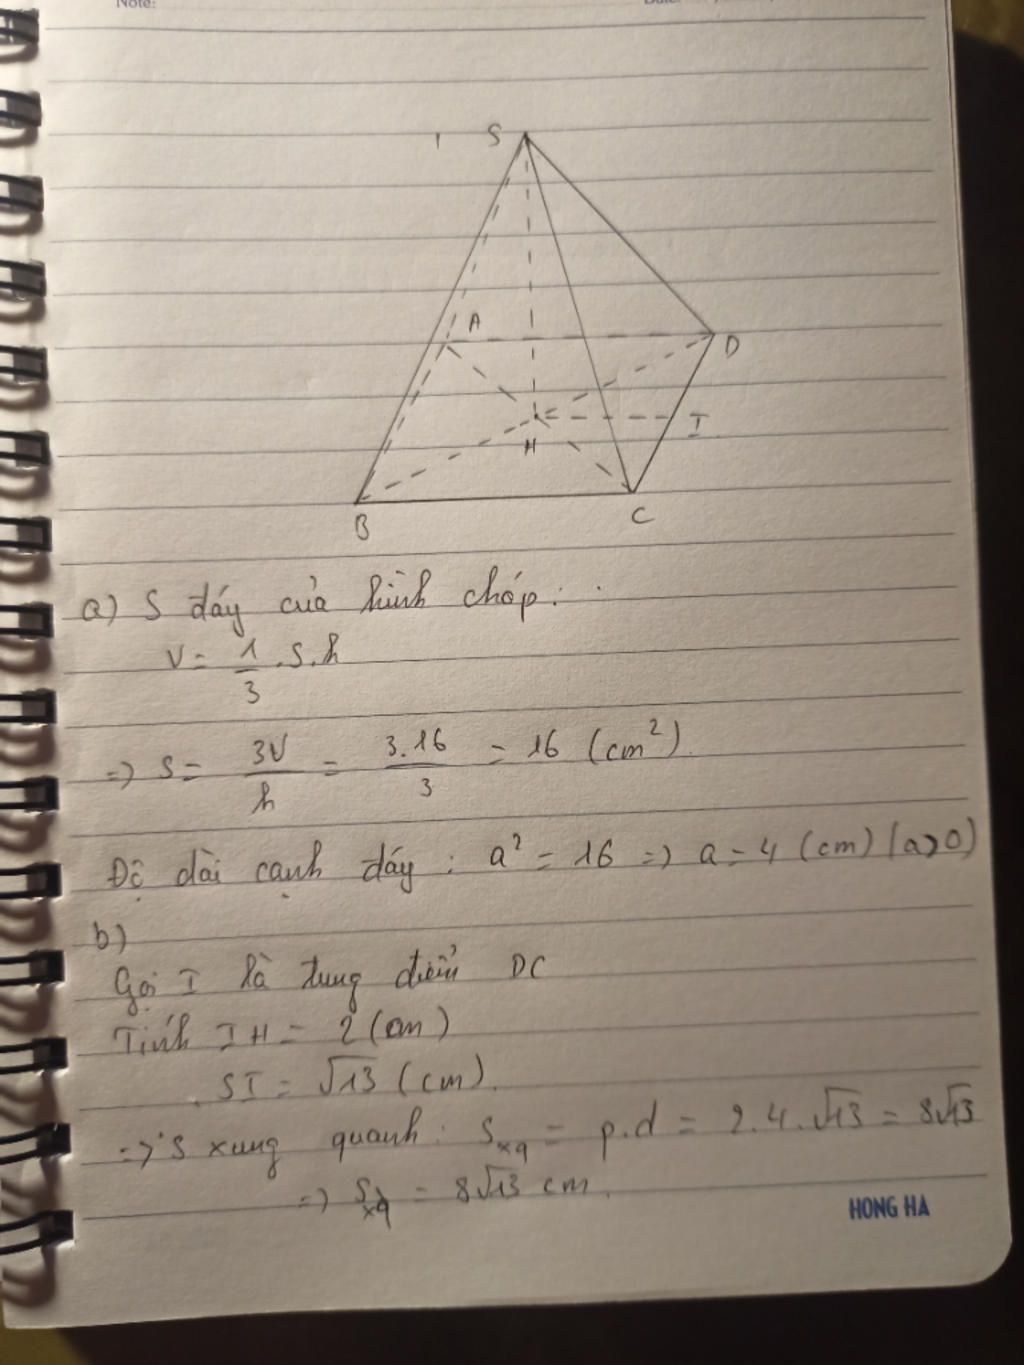 Note:
S
A
D
H
I
B
C
a) S đáy của hình chóp:
V = 1/3 .S.h
=> S = 3V/h = 3.16/3 = 16 (cm²)
Độ dài cạnh đáy : a² = 16 => a = 4 (cm) (a>0)
b)
Gọi I là trung điểm DC
Tính IH = 2 (cm)
SI = √13 (cm).
=> S xung quanh: Sxq = p.d = 2.4.√13 = 8√13
=> Sxq = 8√13 cm.
HONG HA